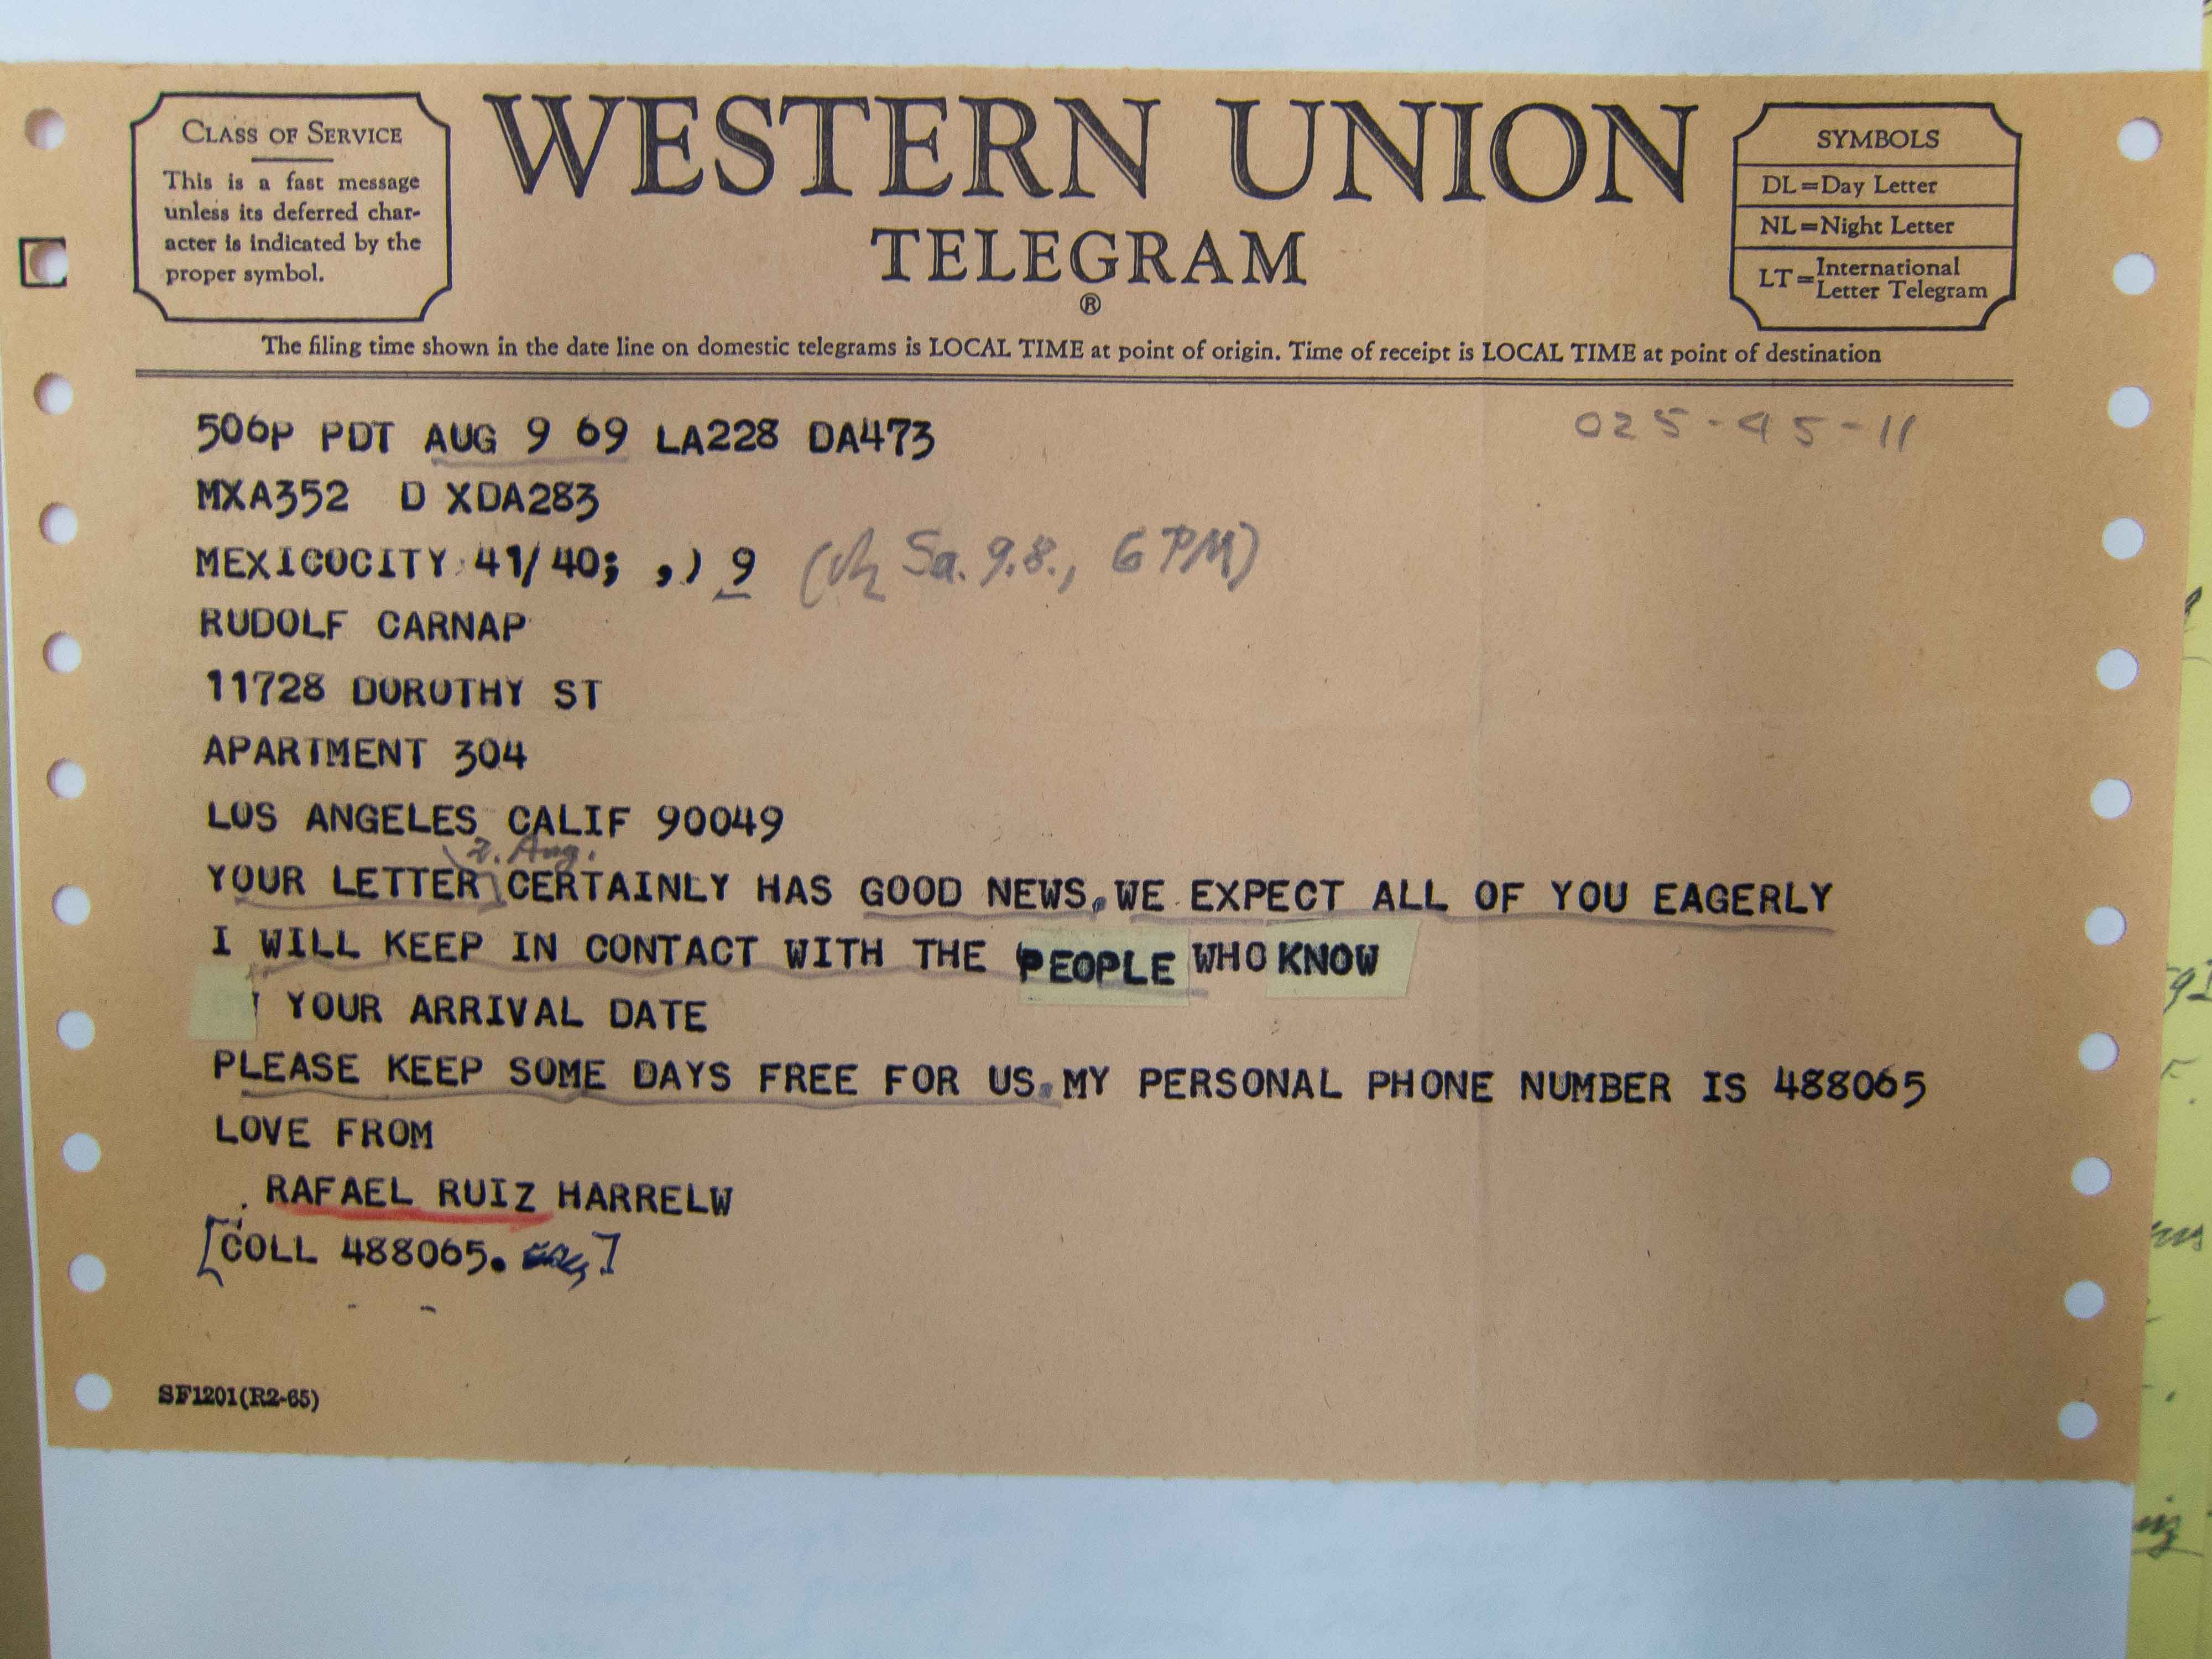 CLASS OF SERVICE
This is a fast message
unless its deferred char-
acter is indicated by the
proper symbol.
WESTERN UNION
TELEGRAM
®
SYMBOLS
DL=Day Letter
NL=Night Letter
LT=International
Letter Telegram
The filing time shown in the date line on domestic telegrams is LOCAL TIME at point of origin. Time of receipt is LOCAL TIME at point of destination
506P PDT AUG 9 69 LA228 DA473
025-45-11
MXA352 D XDA283
MEXICOCITY 41/40; ,) 9 ( Sa. 9.8., 6 PM)
RUDOLF CARNAP
11728 DOROTHY ST
APARTMENT 304
LOS ANGELES CALIF 90049
2. Aug.
YOUR LETTER CERTAINLY HAS GOOD NEWS. WE EXPECT ALL OF YOU EAGERLY
I WILL KEEP IN CONTACT WITH THE PEOPLE WHO KNOW
YOUR ARRIVAL DATE
PLEASE KEEP SOME DAYS FREE FOR US. MY PERSONAL PHONE NUMBER IS 488065
LOVE FROM
RAFAEL RUIZ HARRELW
[COLL 488065. ]
SF1201(R2-65)